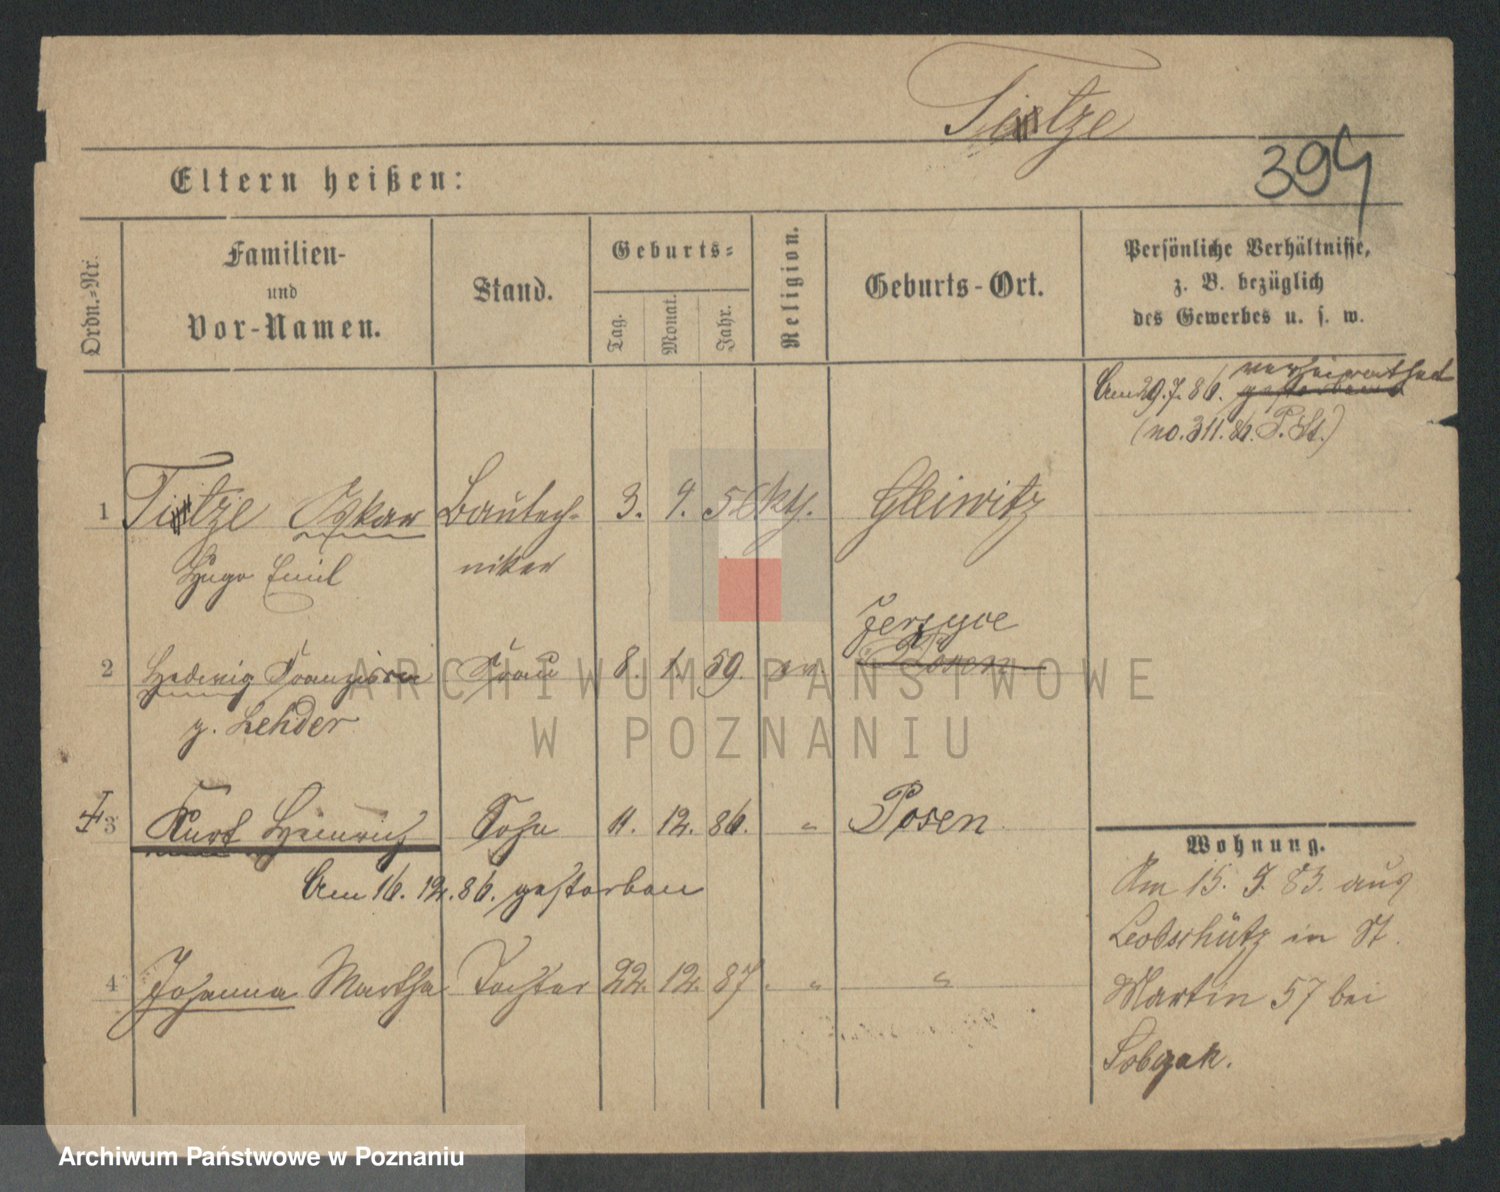 Tietze
394
Eltern heißen:
Ordn.-Nr.
Familien-
und
Vor-Namen.
Stand.
Geburts-
Tag.
Monat.
Jahr.
Religion.
Geburts-Ort.
Persönliche Verhältnisse,
z. B. bezüglich
des Gewerbes u. s. w.
Am 29.7.86. verheirathet
gestorben
(no. 311. 86. P. St.)
1 Tietze Oskar Bautech- 3. 9. 56 kth. Gleiwitz
Hugo Emil niker
Jerzyce
2 Hedwig Franziska Frau 8. 1. 59. ev Posen
g. Lehder
3 Kurt Heinrich Sohn 11. 12. 86. " Posen
Am 16. 12. 86. gestorben
4 Johanna Martha Tochter 22. 12. 87. " "
Wohnung.
Am 15. 5. 83. aus
Leobschütz in St.
Martin 57 bei
ARCHIWUM PAŃSTWOWE
W POZNANIU
Archiwum Państwowe w Poznaniu